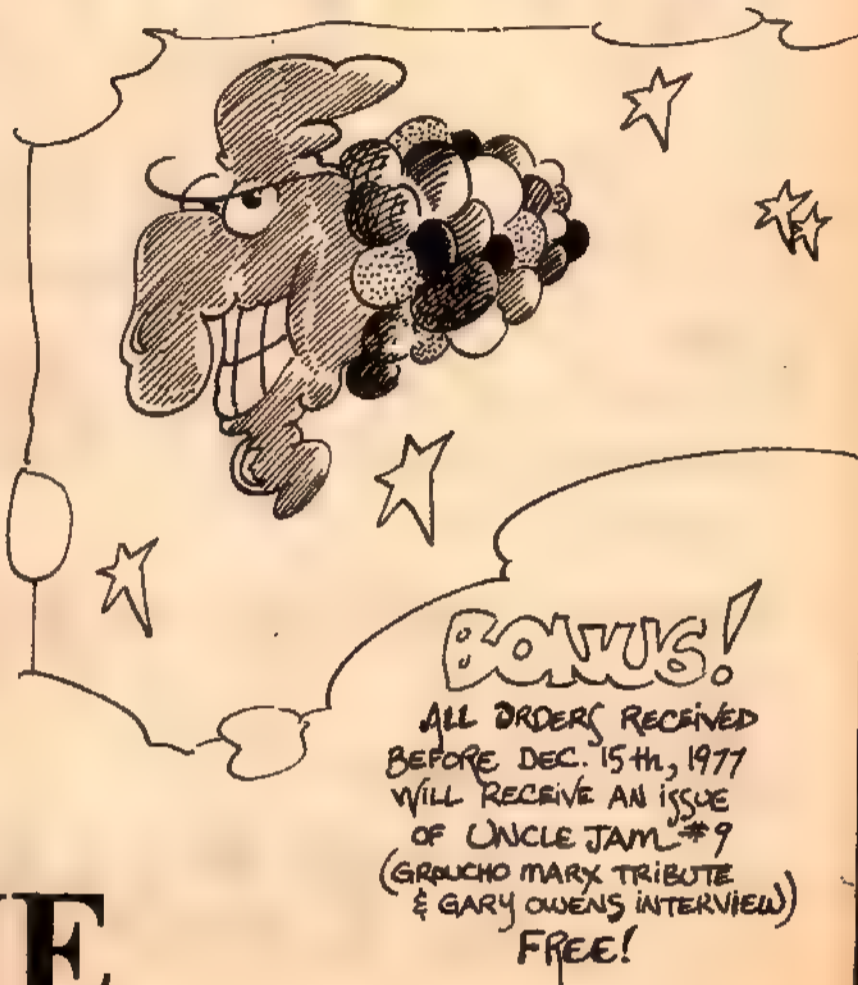 BONUS!
ALL ORDERS RECEIVED
BEFORE DEC. 15th, 1977
WILL RECEIVE AN ISSUE
OF UNCLE JAM #9
(GROUCHO MARX TRIBUTE
& GARY OWENS INTERVIEW)
FREE!